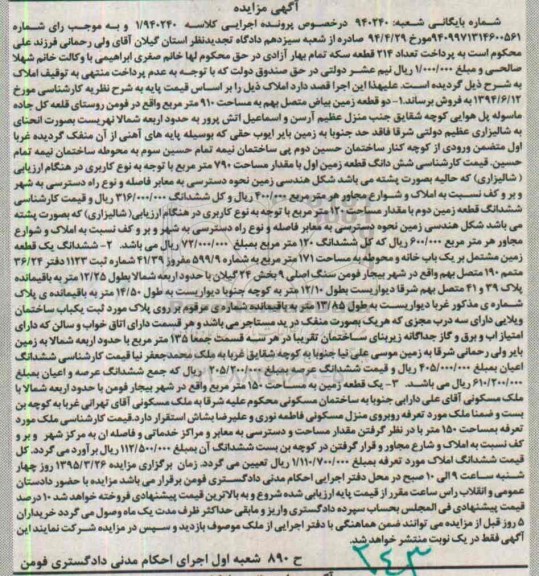 آگهی مزایده
شماره بایگانی شعبه: ۹۴۰۲۴۰ درخصوص پرونده اجرایی کلاسه ۱/۹۴۰۲۴۰ و به موجب رای شماره
۹۴۰۹۹۷۱۳۱۴۶۰۰۵۶۱ مورخ ۹۴/۴/۲۹ صادره از شعبه سیزدهم دادگاه تجدیدنظر استان گیلان آقای ولی رحمانی فرزند علی
محکوم است به پرداخت تعداد ۲۱۴ قطعه سکه تمام بهار آزادی در حق محکوم لها خانم صغری ابراهیمی با وکالت خانم شهلا
صالحی و مبلغ ۱/۰۰۰/۰۰۰ ریال نیم عشر دولتی در حق صندوق دولت که با توجه به عدم پرداخت منتهی به توقیف املاک
به شرح ذیل گردیده است. علیهذا این اجرا قصد دارد املاک ذیل را بر اساس قیمت پایه به شرح نظریه کارشناسی مورخ
۱۳۹۴/۶/۱۲ به فروش برساند.۱- دو قطعه زمین بیاض متصل بهم به مساحت ۹۱۰ متر مربع واقع در فومن روستای قلعه کل جاده
ماسوله پل هوایی کوچه شقایق جنب منزل عظیم آرسن و اسماعیل آتش پرور به حدود اربعه شمالا نهریست بصورت انحنای
به شالیزاری عظیم دولتی شرقا فاقد حد جنوبا به زمین بایر ایوب حقی که بوسیله پایه های آهنی از آن منفک گردیده غربا
اول متضمن ورودی از کوچه کنار ساختمان حسین دوم پی ساختمان نیمه تمام حسین سوم به محوطه ساختمان نیمه تمام
حسین. قیمت کارشناسی شش دانگ قطعه زمین اول با مقدار مساحت ۷۹۰ متر مربع با توجه به نوع کاربری در هنگام ارزیابی
( شالیزاری) که حالیه بصورت پشته می باشد شکل هندسی زمین نحوه دسترسی به معابر فاصله و نوع راه دسترسی به شهر
و بر و کف نسبت به املاک و شوارع مجاور هر متر مربع ۴۰۰/۰۰۰ ریال و کل ششدانگ ۳۱۶/۰۰۰/۰۰۰ ریال و قیمت کارشناسی
ششدانگ قطعه زمین دوم با مقدار مساحت ۱۲۰ متر مربع با توجه به نوع کاربری در هنگام ارزیابی( شالیزاری) که بصورت پشته
می باشد شکل هندسی زمین نحوه دسترسی به معابر فاصله و نوع راه دسترسی به شهر و بر و کف نسبت به املاک و شوارع
مجاور هر متر مربع ۶۰۰/۰۰۰ ریال که کل ششدانگ ۱۲۰ متر مربع بمبلغ ۷۲/۰۰۰/۰۰۰ ریال می باشد. ۲- ششدانگ یک قطعه
زمین مشتمل بر یک باب خانه و محوطه به مساحت ۱۷۱ متر مربع به شماره ۵۹۹/۹ مفروز ۴۱/۳۹ شماره ثبت ۱۱۲۳ دفتر ۳۶/۲۴
متمم ۱۹۰ متصل بهم واقع در شهر بیجار فومن سنگ اصلی ۹ بخش ۲۴ گیلان با حدود اربعه شمالا بطول ۱۲/۲۵ متر به باقیمانده
پلاک ۳۹ و ۴۱ متصل بهم شرقا دیواریست بطول ۱۲/۱۰ متر به کوچه جنوبا دیواریست به طول ۱۴/۵۰ متر به باقیمانده ی پلاک
شماره ی مذکور غربا دیواریست به طول ۱۳/۸۵ متر به باقیمانده شماره ی مرقوم بر روی پلاک مورد ثبت یکباب ساختمان
ویلایی دارای سه درب مجزی که هریک بصورت منفک در ید مستاجر می باشد و هر قسمت دارای اتاق خواب و سالن که دارای
امتیاز آب و برق و گاز جداگانه زیربنای ساختمان تقریبا در هر سه قسمت جمعا ۱۳۵ متر مربع با حدود اربعه شمالا به زمین
بایر ولی رحمانی شرقا به زمین موسی علی نیا جنوبا به کوچه شقایق غربا به ملک محمدجعفر نیا قیمت کارشناسی ششدانگ
اعیان بمبلغ ۴۰۵/۰۰۰/۰۰۰ ریال و قیمت ششدانگ عرصه بمبلغ ۲۰۵/۲۰۰/۰۰۰ ریال که جمع ششدانگ عرصه و اعیان بمبلغ
۶۱۰/۲۰۰/۰۰۰ ریال می باشد. ۳- یک قطعه زمین به مساحت ۱۵۰ متر مربع واقع در شهر بیجار فومن با حدود اربعه شمالا با
ملک مسکونی آقای علی دارابی جنوبا به ساختمان مسکونی محکوم علیه شرقا به ملک مسکونی آقای تهرانی غربا به کوچه بن
بست و ضمنا ملک مورد تعرفه روبروی منزل مسکونی فاطمه نوری و علیرضا بشاش استقرار دارد.قیمت کارشناسی ملک مورد
تعرفه بمساحت ۱۵۰ متر با در نظر گرفتن مقدار مساحت و دسترسی به معابر و مراکز خدماتی و فاصله آن به مرکز شهر و بر و
کف نسبت به املاک و شارع مجاور و قرار گرفتن در کوچه بن بست ششدانگ آن بمبلغ ۱۱۲/۵۰۰/۰۰۰ ریال برآورد می گردد. کل
قیمت ششدانگ املاک مورد تعرفه بمبلغ ۱/۱۱۰/۷۰۰/۰۰۰ ریال تعیین می گردد. زمان برگزاری مزایده ۱۳۹۵/۳/۲۶ روز چهار
شنبه ساعت ۹ الی ۱۰ صبح در محل دفتر اجرایی احکام مدنی دادگستری فومن برقرار می باشد مزایده با حضور دادستان
عمومی و انقلاب راس ساعت مقرر از قیمت پایه ارزیابی شده شروع و به بالاترین قیمت پیشنهادی فروخته خواهد شد ۱۰ درصد
قیمت پیشنهادی فی المجلس بحساب سپرده دادگستری واریز و مابقی حداکثر ظرف مدت یک ماه وصول می گردد خریداران
۵ روز قبل از مزایده می توانند ضمن هماهنگی با دفتر اجرایی از ملک موصوف بازدید و سپس در مزایده شرکت نمایند این
آگهی فقط در یک نوبت منتشر خواهد شد.
۲۴۳
ح ۸۹۰ شعبه اول اجرای احکام مدنی دادگستری فومن